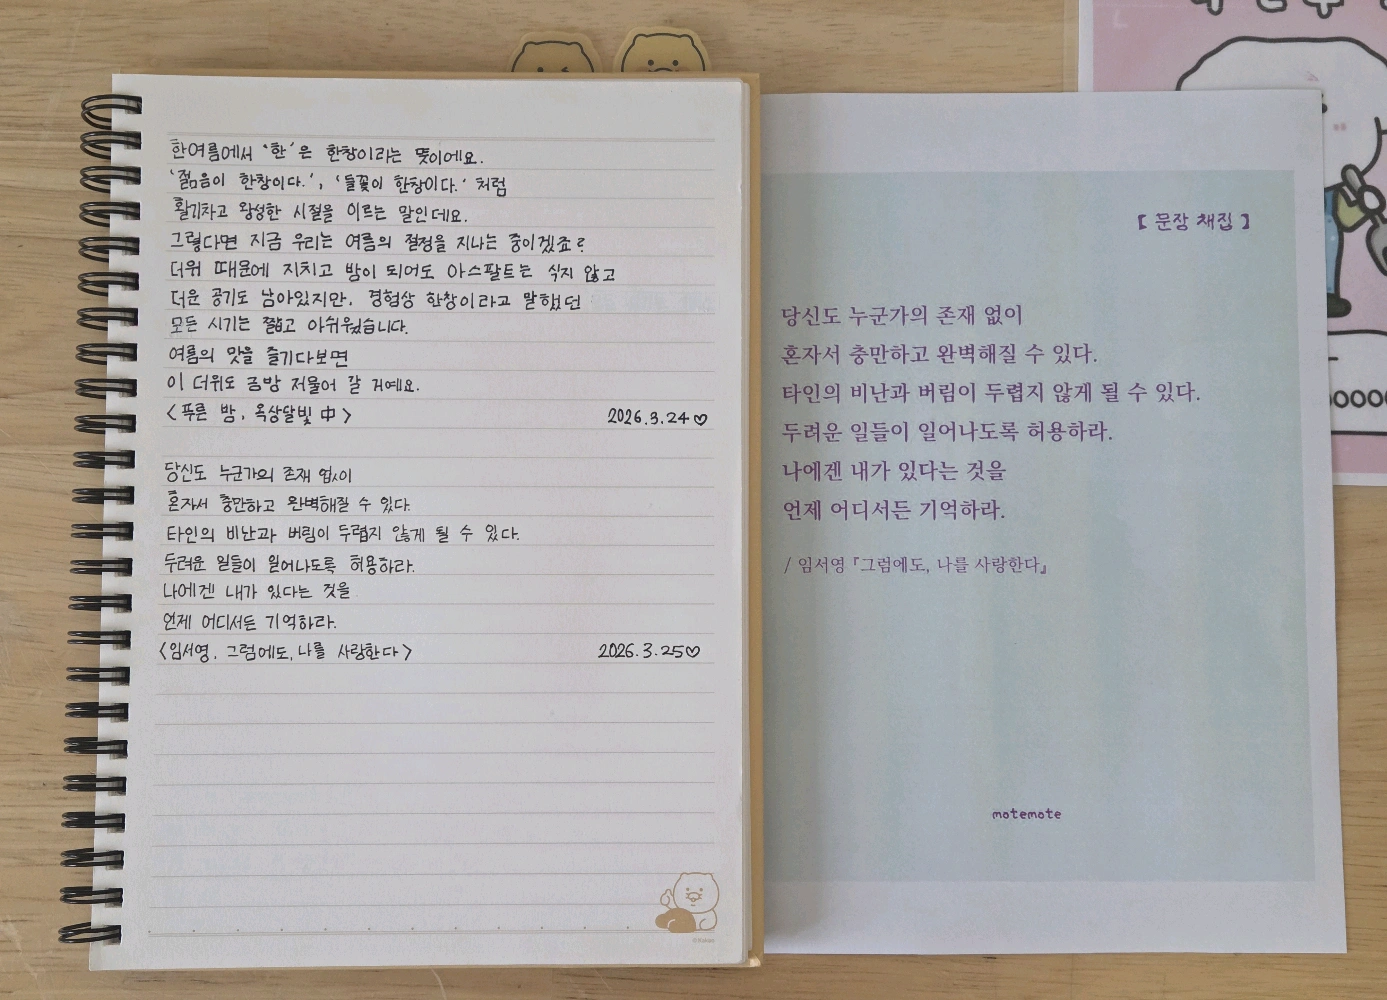 한여름에서 '한'은 한창이라는 뜻이에요.
'젊음이 한창이다.', '들꽃이 한창이다.' 처럼
활기차고 왕성한 시절을 이르는 말인데요.
그렇다면 지금 우리는 여름의 절정을 지나는 중이겠죠?
더위 때문에 지치고 밤이 되어도 아스팔트는 식지 않고
더운 공기도 남아있지만, 경험상 한창이라고 말했던
모든 시기는 짧고 아쉬웠습니다.
여름의 맛을 즐기다보면
이 더위도 금방 저물어 갈 거예요.
<푸른 밤, 옥상달빛 中>
2026.3.24♡
당신도 누군가의 존재 없이
혼자서 충만하고 완벽해질 수 있다.
타인의 비난과 버림이 두렵지 않게 될 수 있다.
두려운 일들이 일어나도록 허용하라.
나에겐 내가 있다는 것을
언제 어디서든 기억하라.
<임서영, 그럼에도, 나를 사랑한다>
2026.3.25♡
©Kakao
【 문장 채집 】
당신도 누군가의 존재 없이
혼자서 충만하고 완벽해질 수 있다.
타인의 비난과 버림이 두렵지 않게 될 수 있다.
두려운 일들이 일어나도록 허용하라.
나에겐 내가 있다는 것을
언제 어디서든 기억하라.
/ 임서영 『그럼에도, 나를 사랑한다』
motemote